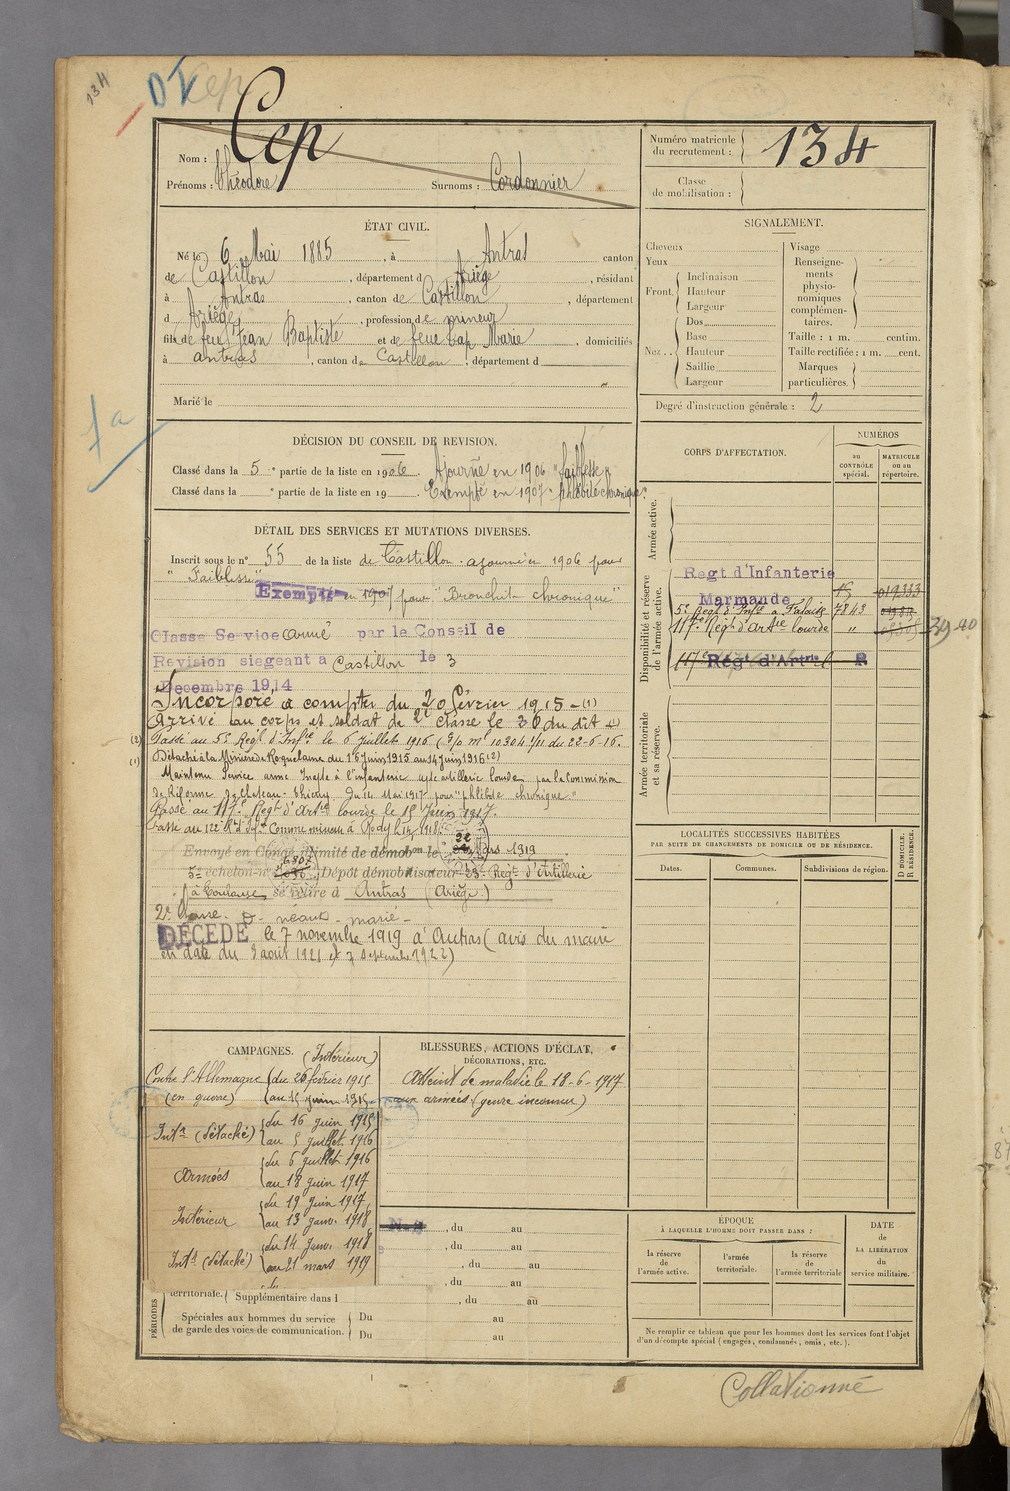 134
DV Cep
Nom : Cep
Prénoms : Théodore Surnoms : Cordonnier
Numéro matricule
du recrutement : 134
Classe
de mobilisation :
ÉTAT CIVIL.
Né le 6 Mai 1885, à Antras canton
de Castillon, département d Ariège, résidant
à Antras, canton de Castillon, département
d Ariège, profession de mineur
fils de feu Jean Baptiste et de feue Cap Marie, domiciliés
à antras, canton de Castillon, département d "
Marié le
SIGNALEMENT.
Cheveux
Yeux
Front. Inclinaison
Hauteur
Largeur
Nez .. Dos
Base
Hauteur
Saillie
Largeur
Visage
Renseigne-
ments
physio-
nomiques
complémen-
taires.
Taille : 1 m. centim.
Taille rectifiée : 1 m. cent.
Marques
particulières.
Degré d'instruction générale : 2
1a
DÉCISION DU CONSEIL DE REVISION.
Classé dans la 5e partie de la liste en 1906. Ajourné en 1906 "faiblesse"
Classé dans la e partie de la liste en 19 . Exempté en 1907 - phlébite chronique.
DÉTAIL DES SERVICES ET MUTATIONS DIVERSES.
Inscrit sous le n° 55 de la liste de Castillon. ajourné en 1906 pour
"Faiblesse"
Exempté en 1907 pour "Bronchite chronique"
Classe Service armé par le Conseil de
Revision siegeant à Castillon le 3
Decembre 1914
Incorporé à compter du 20 février 1915 - (1)
Arrivé au corps et soldat de 2e classe le 26 du dit
(2) Passé au 5e Régt d'Infie le 6 juillet 1916 (S/o Mle 10304 7/11 du 22-6-16.
(1) Détaché à la Minière de Roquelaure du 16 juin 1915 au 14 juin 1916 (2)
Maintenu Service armé Inapte à l'infanterie apte artillerie lourde par la Commission
de Réforme de Chateau-Thierry du 14 Mai 1917 pour "phlébite chronique"
Passé au 117e Régt d'Artie lourde le 15 Juin 1917.
Passé au 122e Rt d'Infie Comme mineur à Rodez le 14 1 1918.
Envoyé en Congé illimité de démobon le 22 Mars 1919
5e échelon n° 6807 Dépôt démobilisateur 23e Régt d'Artillerie
à Toulouse se retire à Antras (Ariège)
2e Classe. D - néant - marié -
DÉCÉDÉ le 7 novembre 1919 à Antras (avis du maire
en date du 3 août 1921 et 7 septembre 1922)
CORPS D'AFFECTATION.
NUMÉROS
au
CONTRÔLE
spécial.
MATRICULE
ou au
répertoire.
Armée active.
Disponibilité et réserve
de l'armée active.
Regt d'Infanterie
Marmande 15 019333
5e Régt d'Infie à Falaise 7843
117e Régt d'Artie lourde "
117e Régt d'Artrie l R
39-40
Armée territoriale
et sa réserve.
LOCALITÉS SUCCESSIVES HABITÉES
PAR SUITE DE CHANGEMENTS DE DOMICILE OU DE RÉSIDENCE.
Dates.
Communes.
Subdivisions de région.
D DOMICILE.
R RÉSIDENCE.
CAMPAGNES. (Intérieur)
Contre l'Allemagne du 26 février 1915
(en guerre) au 15 juin 1915
Intr (détaché) du 16 juin 1915
au 5 juillet 1916
Armées du 6 juillet 1916
au 18 juin 1917
Intérieur du 19 juin 1917
au 13 janv. 1918
Intr (détaché) du 14 janv. 1918
au 21 mars 1919
BLESSURES, ACTIONS D'ÉCLAT,
DÉCORATIONS, ETC.
Atteint de maladie le 18-6-1917
aux armées (genre inconnu)
, du au
, du au
, du au
, du au
PÉRIODES
territoriale. Supplémentaire dans l , du au
Spéciales aux hommes du service
de garde des voies de communication. Du au
Du au
ÉPOQUE
À LAQUELLE L'HOMME DOIT PASSER DANS :
la réserve
de l'armée active.
l'armée
territoriale.
la réserve
de l'armée territoriale
DATE
de
LA LIBÉRATION
du
service militaire.
Ne remplir ce tableau que pour les hommes dont les services font l'objet
d'un décompte spécial (engagés, condamnés, omis, etc.).
Collationné
87